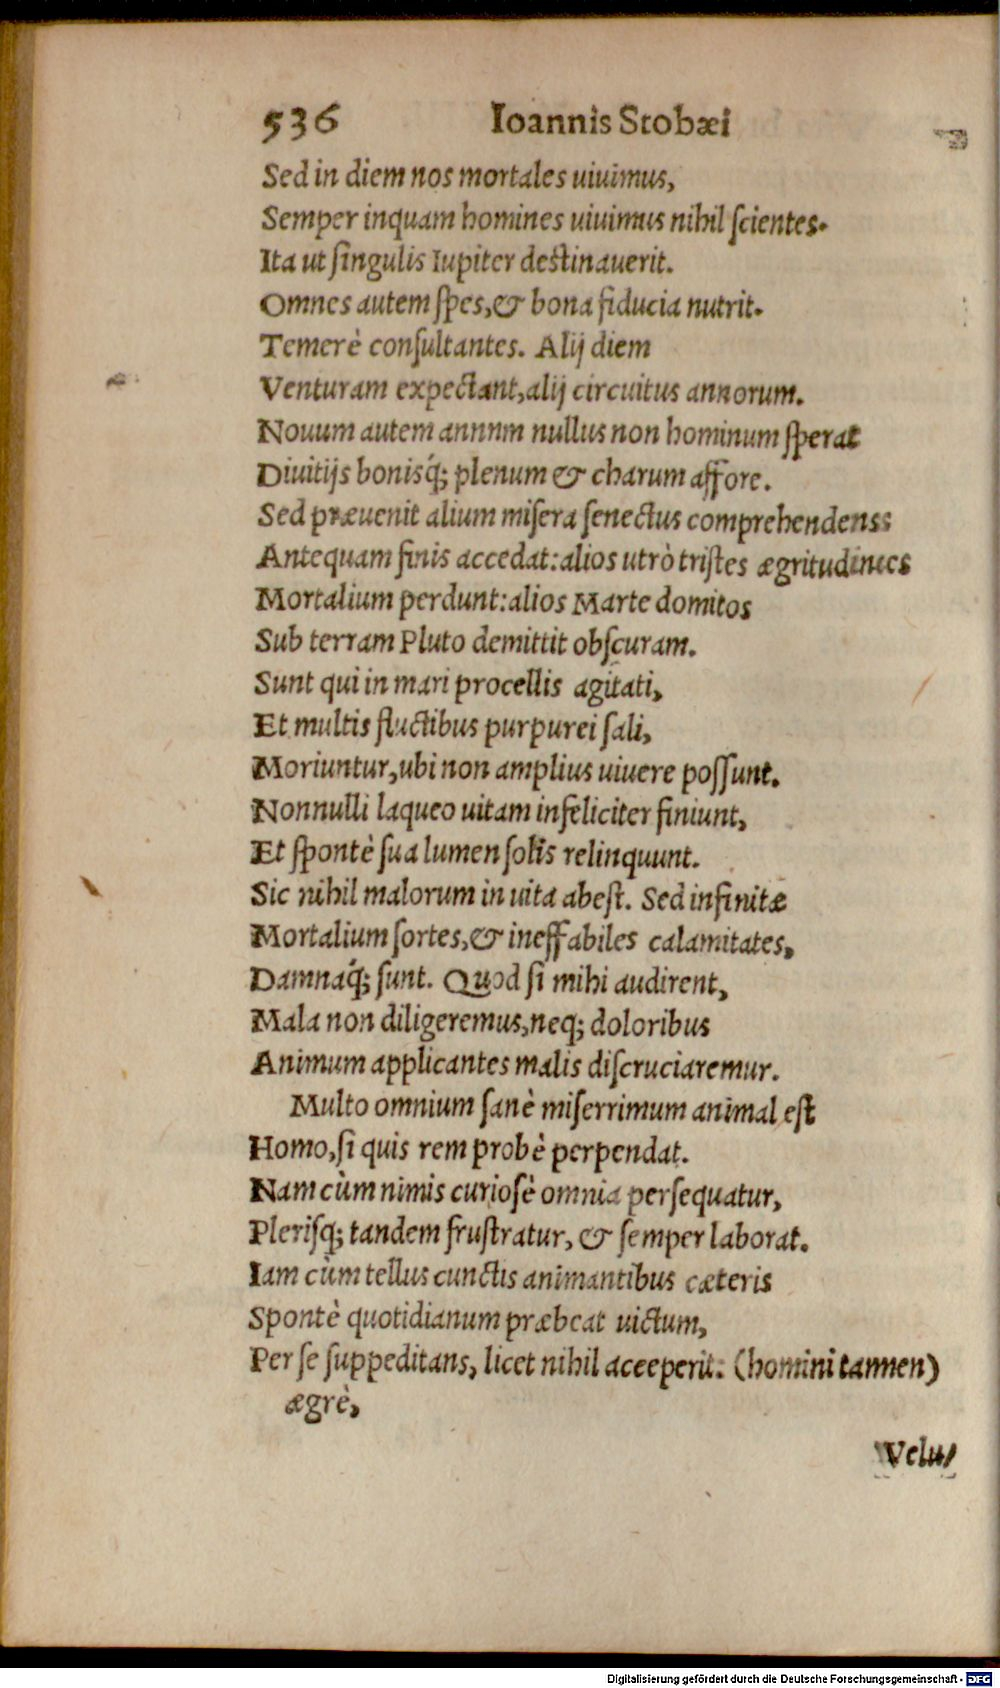 536 Ioannis Stobæi
Sed in diem nos mortales uiuimus,
Semper inquam homines uiuimus nihil scientes.
Ita ut singulis Iupiter destinauerit.
Omnes autem spes, & bona fiducia nutrit.
Temerè consultantes. Alij diem
Venturam expectant, alij circuitus annorum.
Nouum autem annnm nullus non hominum sperat
Diuitijs bonisq́; plenum & charum affore.
Sed præuenit alium misera senectus comprehendenss
Antequam finis accedat: alios utrò tristes ægritudines
Mortalium perdunt: alios Marte domitos
Sub terram Pluto demittit obscuram.
Sunt qui in mari procellis agitati,
Et multis fluctibus purpurei sali,
Moriuntur, ubi non amplius uiuere possunt.
Nonnulli laqueo uitam infeliciter finiunt,
Et spontè sua lumen solis relinquunt.
Sic nihil malorum in uita abest. Sed infinitæ
Mortalium sortes, & ineffabiles calamitates,
Damnaq́; sunt. Quod si mihi audirent,
Mala non diligeremus, neq; doloribus
Animum applicantes malis discruciaremur.
Multo omnium sanè miserrimum animal est
Homo, si quis rem probè perpendat.
Nam cùm nimis curiosè omnia persequatur,
Plerisq; tandem frustratur, & semper laborat.
Iam cùm tellus cunctis animantibus cæteris
Spontè quotidianum præbeat uictum,
Per se suppeditans, licet nihil aceeperit: (homini tamen)
ægrè,
Velut
Digitalisierung gefördert durch die Deutsche Forschungsgemeinschaft - DFG